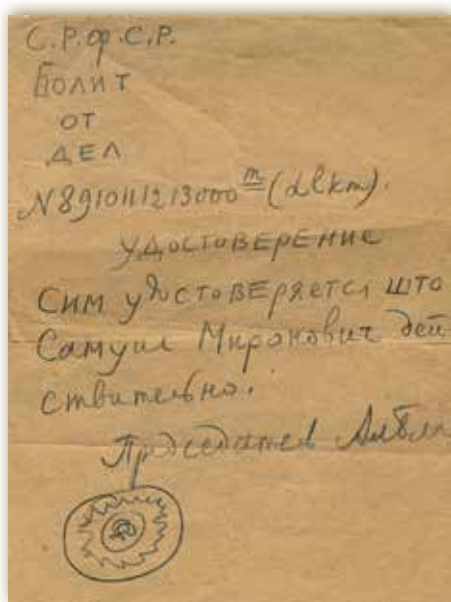 С.Р.Ф.С.Р.
БОЛИТ
ОТ
ДЕЛ
N8910111213000 m
УДОСТОВЕРЕНИЕ
Сим удостоверяется што
Самуил Миронович дей-
ствительно.
Председател